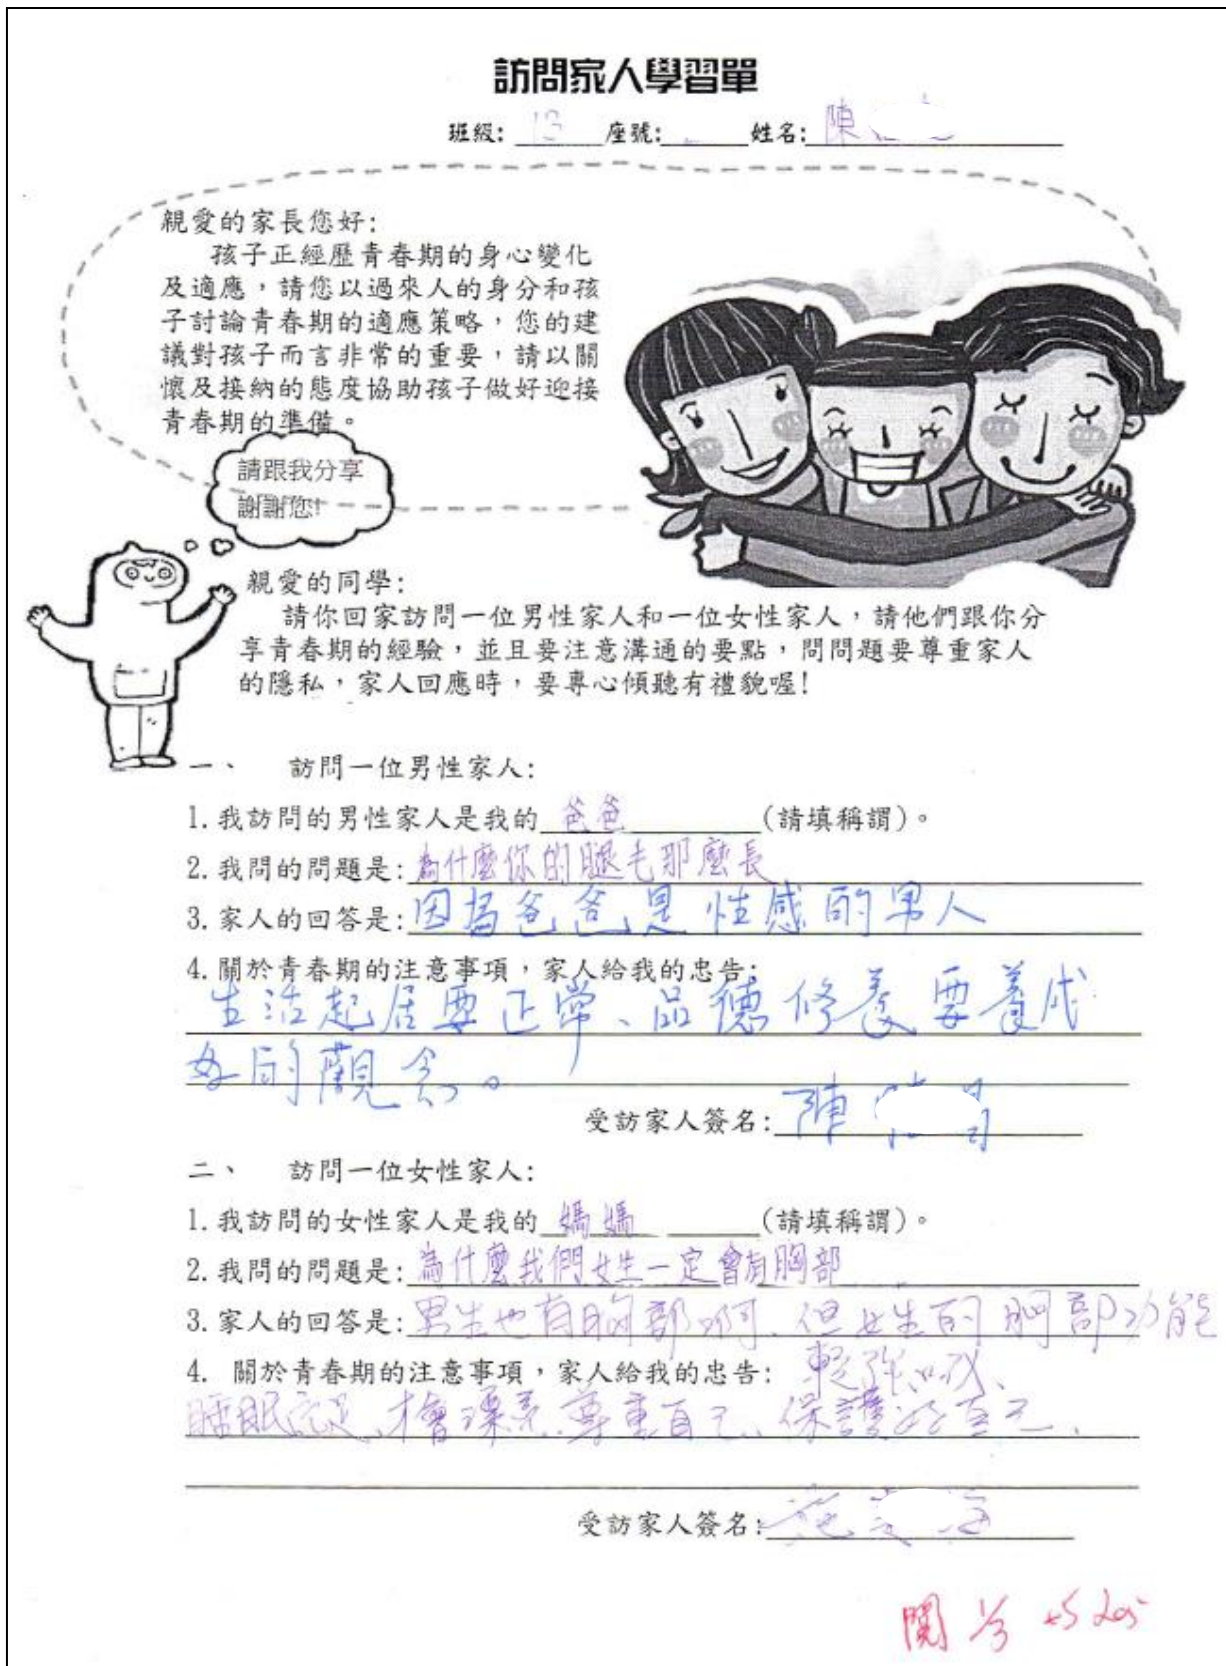 訪問家人學習單
班級: 13 座號: 姓名: 陳
親愛的家長您好:
孩子正經歷青春期的身心變化
及適應,請您以過來人的身分和孩
子討論青春期的適應策略,您的建
議對孩子而言非常的重要,請以關
懷及接納的態度協助孩子做好迎接
青春期的準備。
請跟我分享
謝謝您!
親愛的同學:
請你回家訪問一位男性家人和一位女性家人,請他們跟你分
享青春期的經驗,並且要注意溝通的要點,問問題要尊重家人
的隱私,家人回應時,要專心傾聽有禮貌喔!
一、 訪問一位男性家人:
1.我訪問的男性家人是我的 爸爸 (請填稱謂)。
2.我問的問題是:為什麼你的腿毛那麼長
3.家人的回答是:因為爸爸是性感的男人
4.關於青春期的注意事項,家人給我的忠告:
生活起居要正常、品德修養要養成
好的觀念。
受訪家人簽名:陳
二、 訪問一位女性家人:
1.我訪問的女性家人是我的 媽媽 (請填稱謂)。
2.我問的問題是:為什麼我們女生一定會有胸部
3.家人的回答是:男生也有胸部啊、但女生的胸部功能
4. 關於青春期的注意事項,家人給我的忠告: 較強
睡眠充足、才會漂亮、尊重自己、保護好自己、
受訪家人簽名:
閱